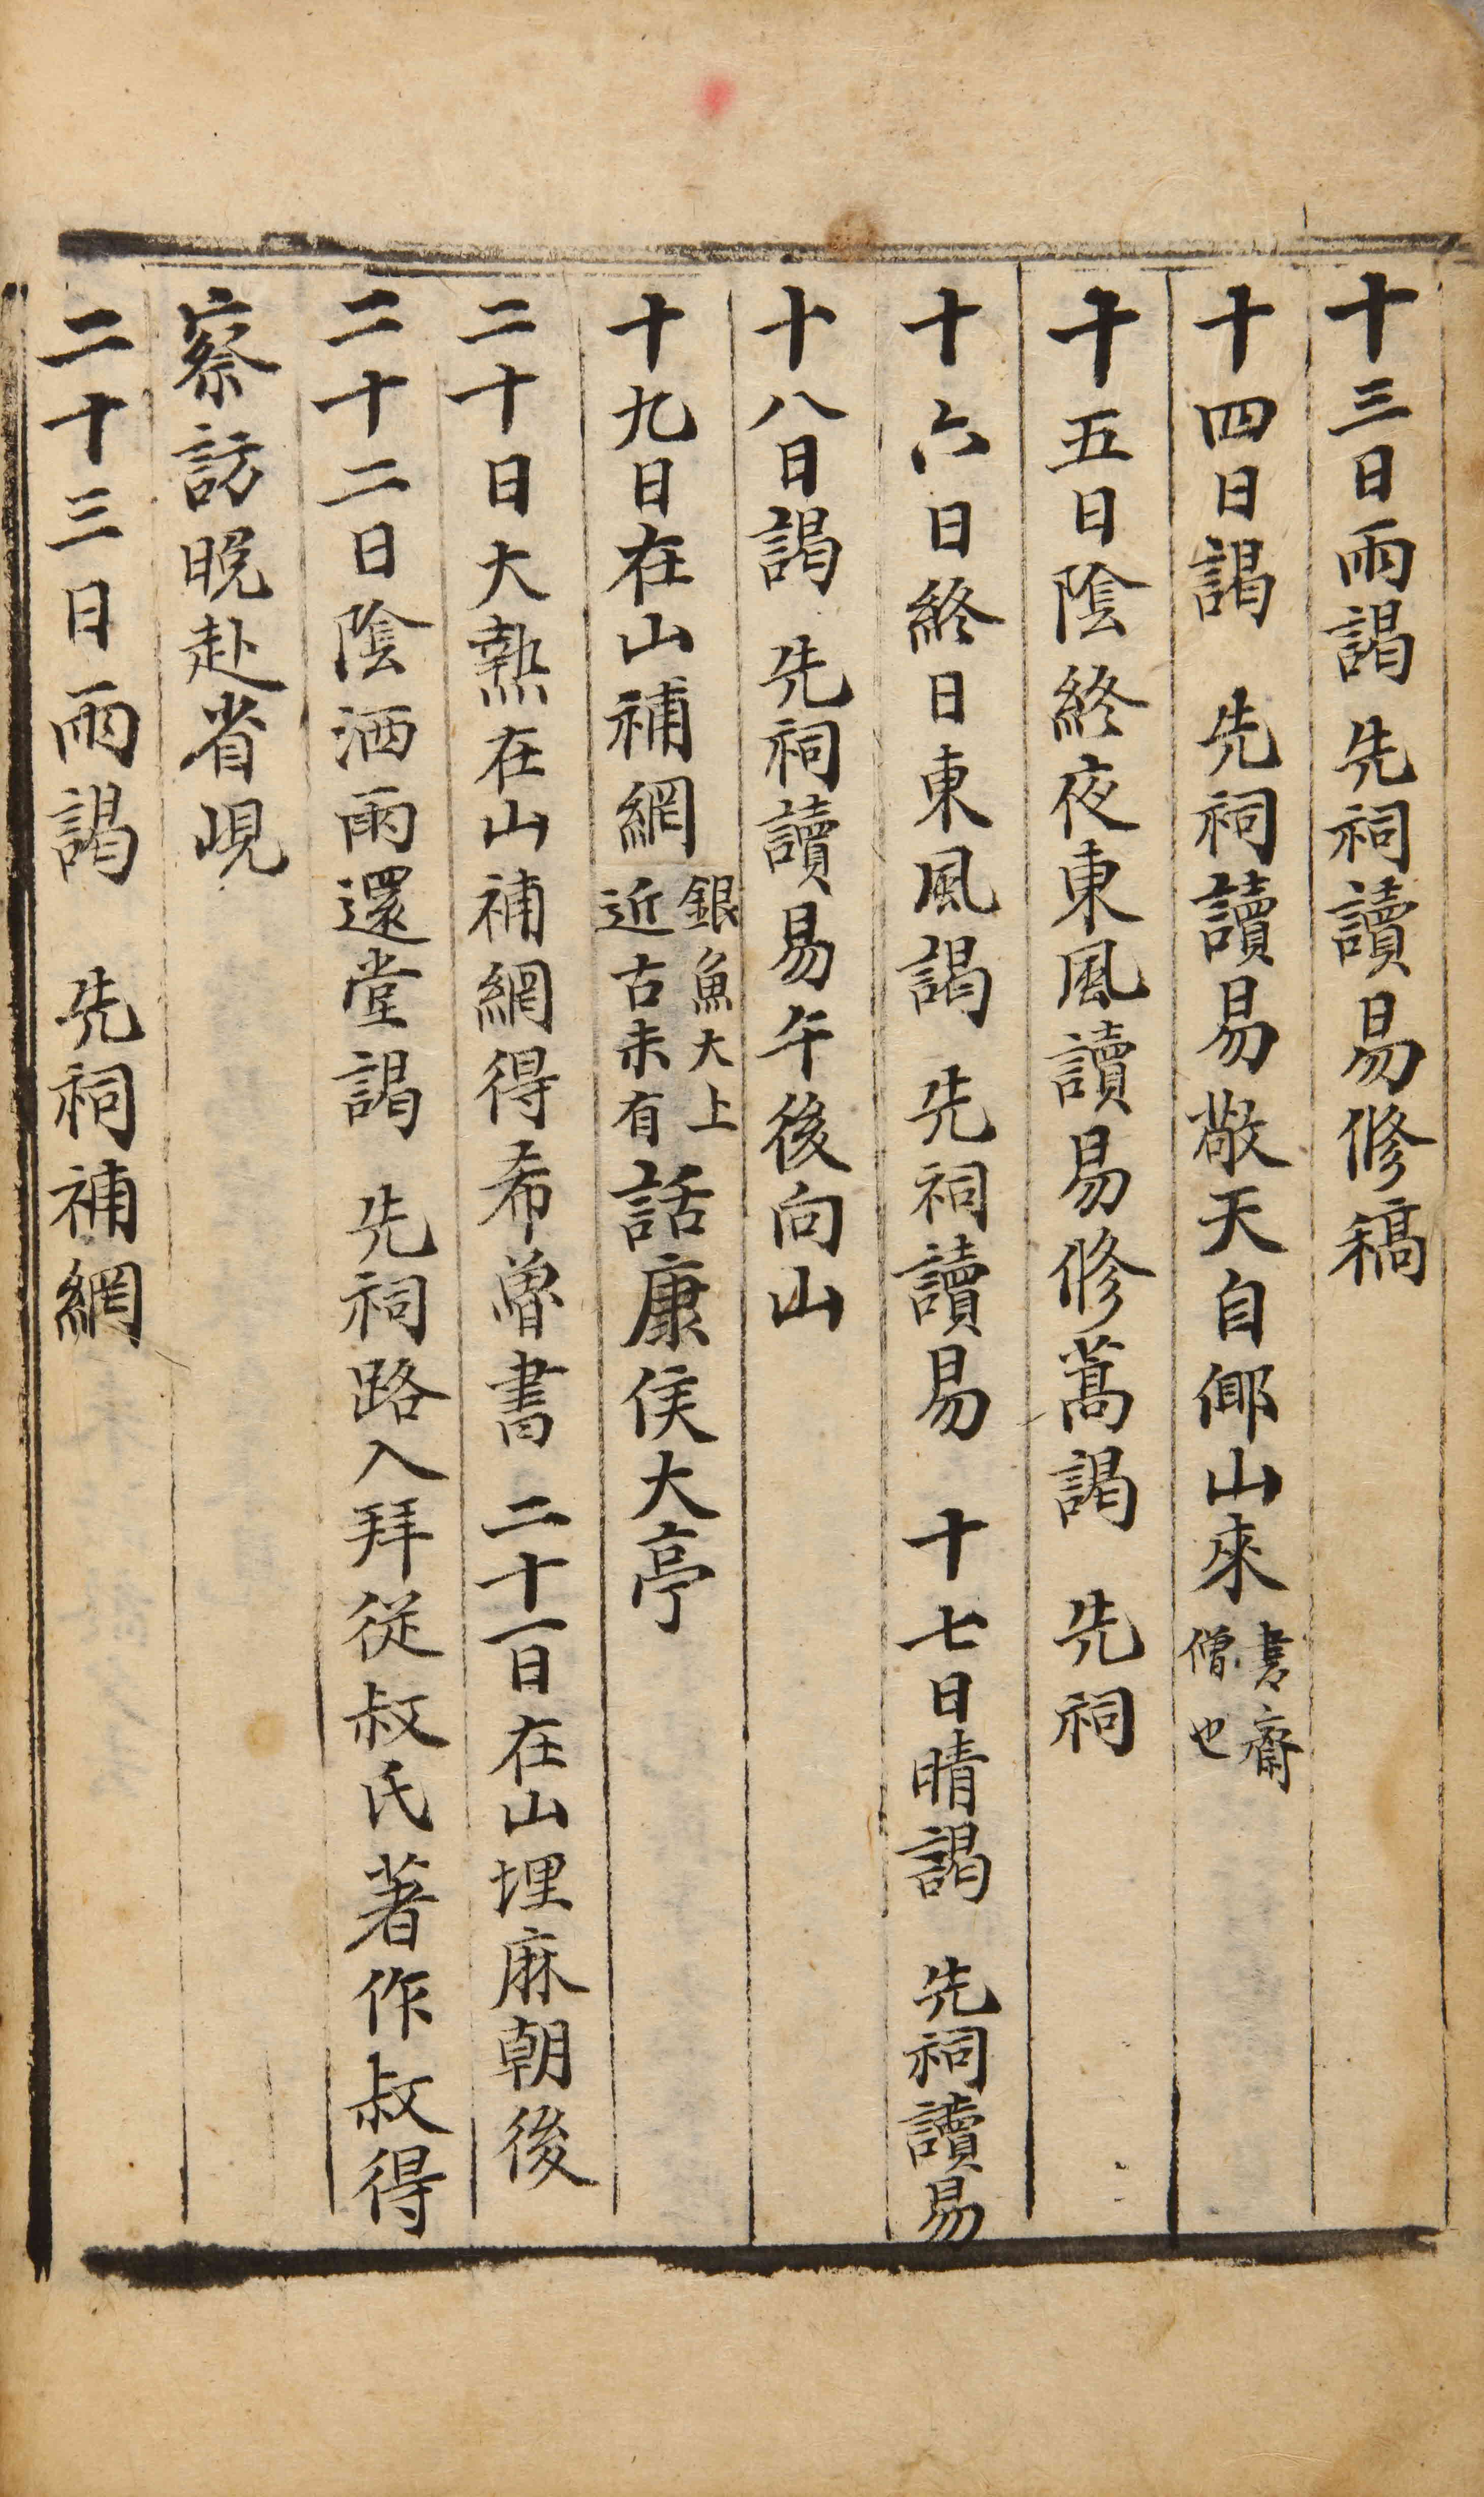 十三日雨謁 先祠讀易修稿
十四日謁 先祠讀易敞天自倻山來書齋僧也
十五日陰終夜東風讀易修蒿謁 先祠
十六日終日東風謁 先祠讀易 十七日晴謁 先祠讀易
十八日謁 先祠讀易午後向山
十九日在山補網銀魚大上近古未有話康侯大亭
二十日大熱在山補網得希魯書 二十一日在山埋麻朝後
二十二日陰洒雨還堂謁 先祠路入拜從叔氏著作叔得
察訪晩赴省峴
二十三日雨謁 先祠補網